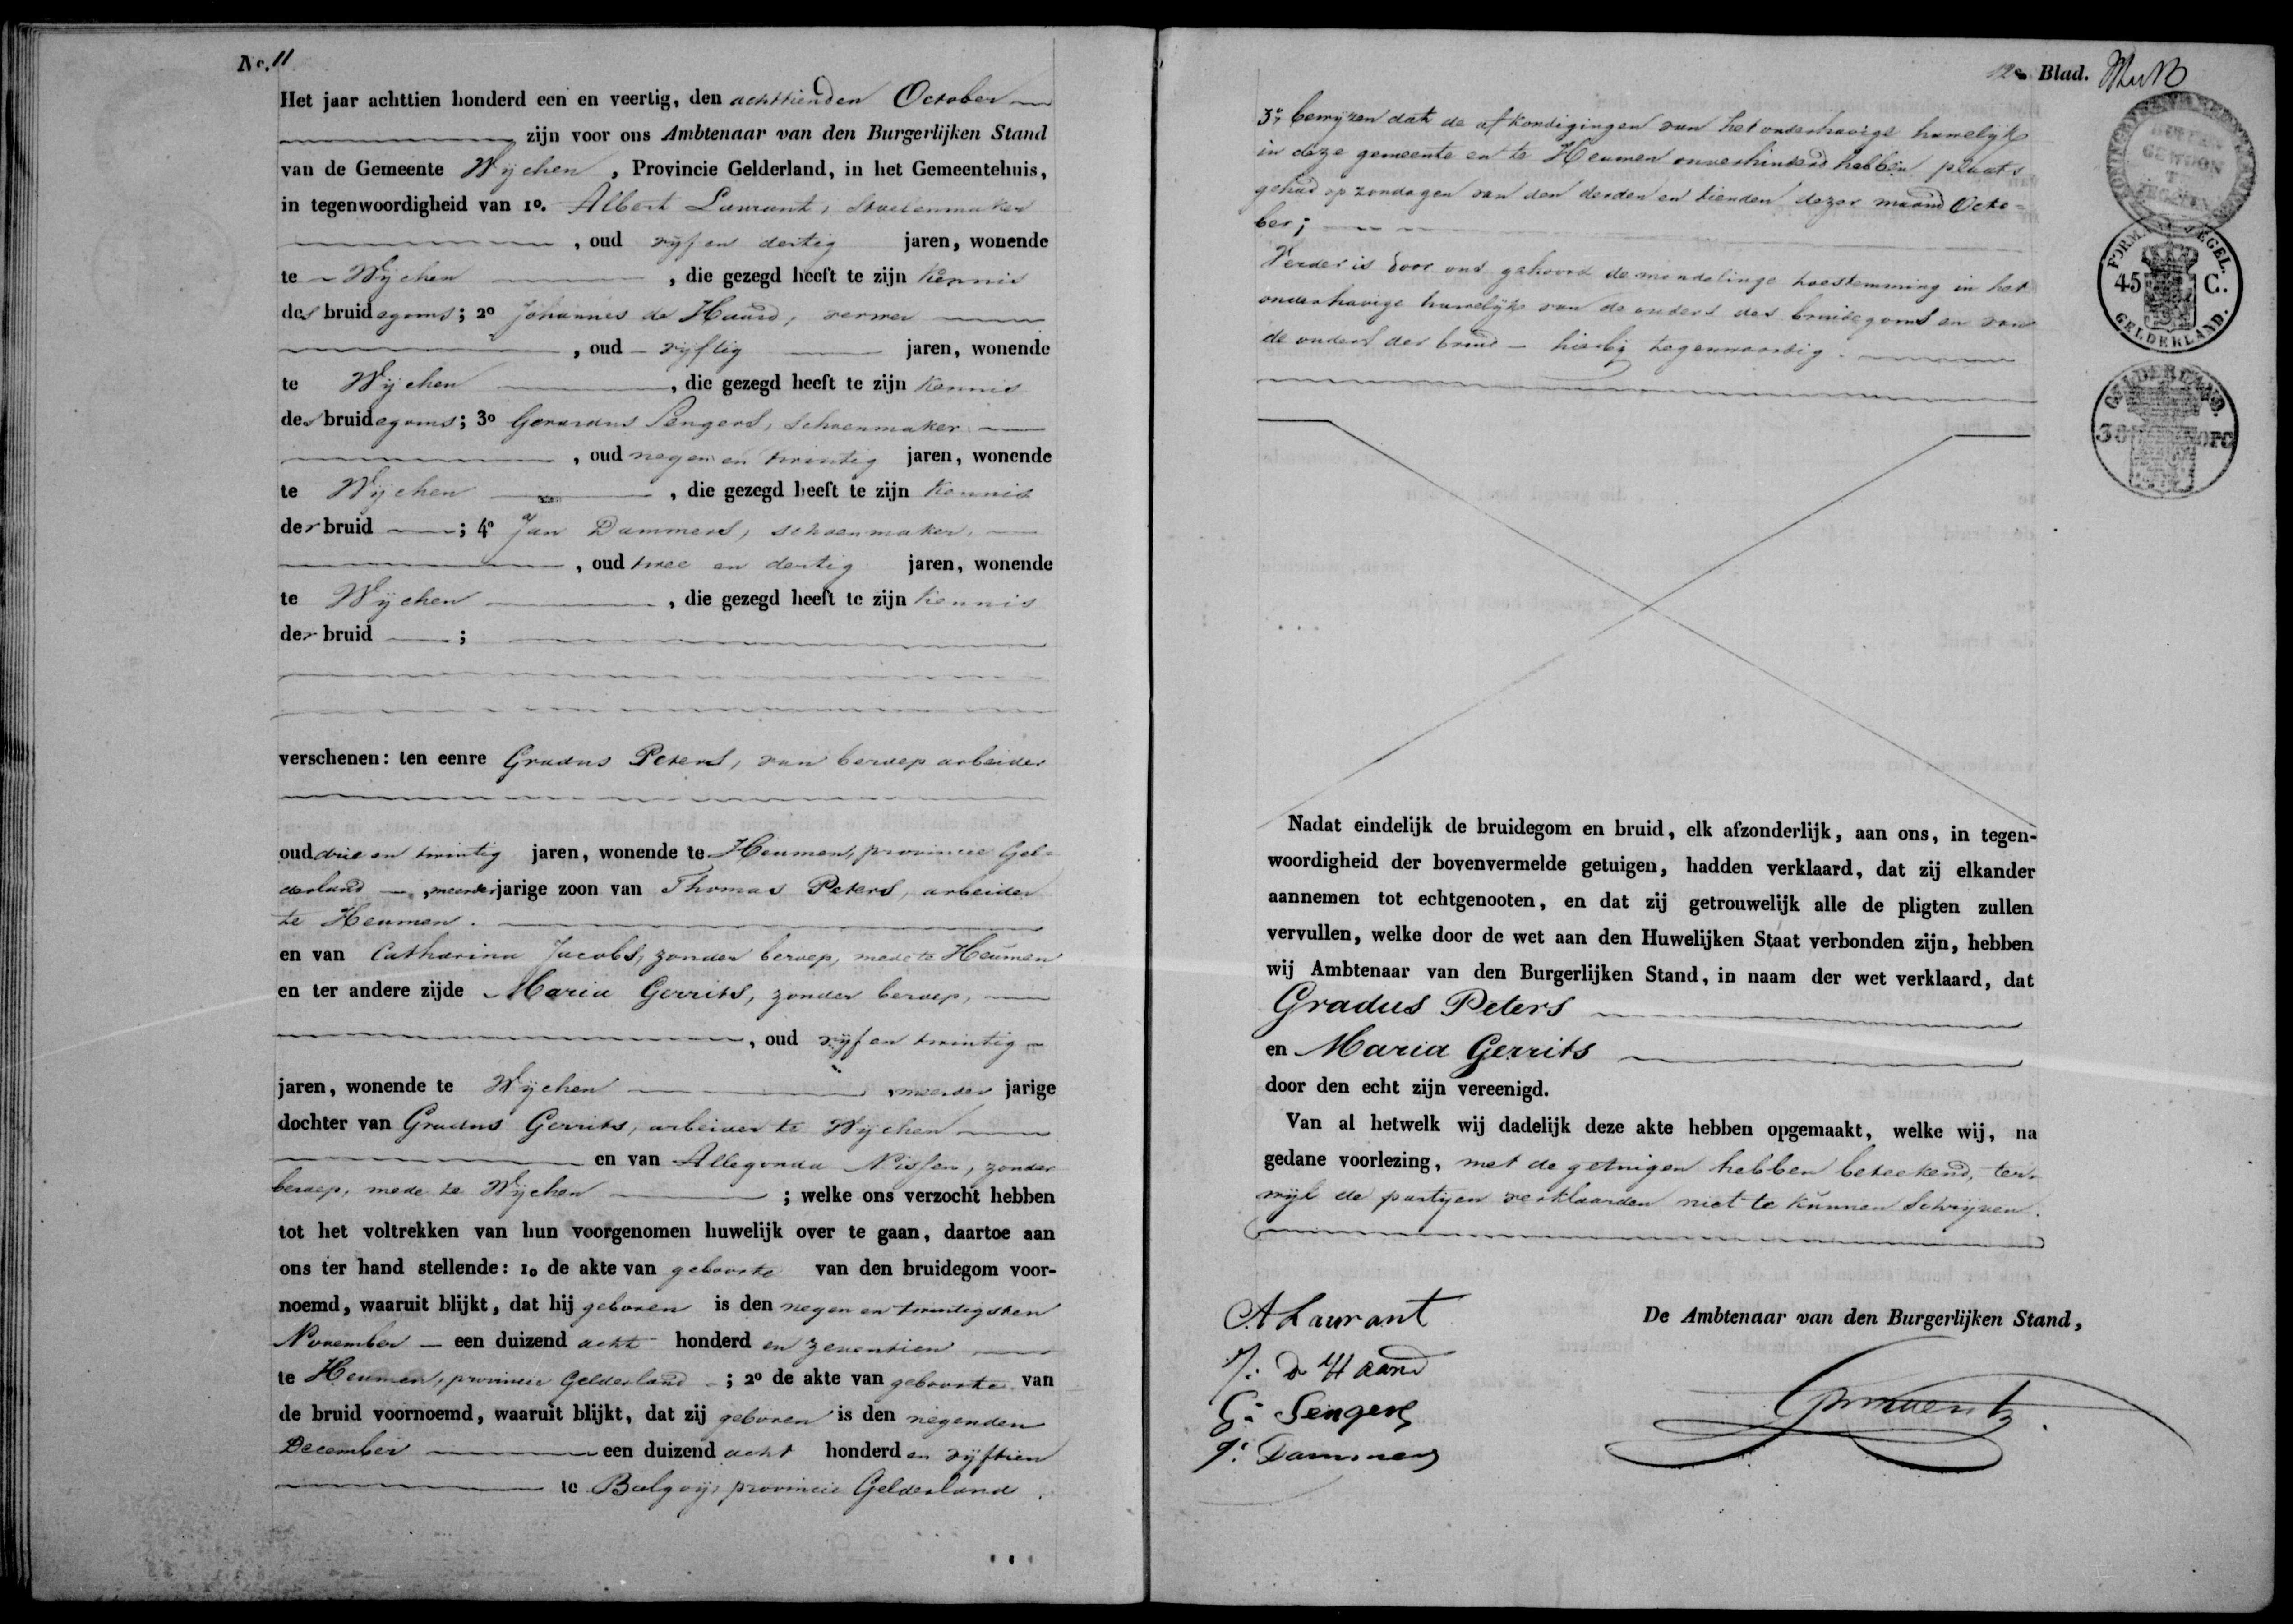 No. 11
Het jaar achttien honderd een en veertig, den achttienden October
zijn voor ons Ambtenaar van den Burgerlijken Stand
van de Gemeente Wijchen , Provincie Gelderland, in het Gemeentehuis,
in tegenwoordigheid van 1o. Albert Laurant, Stoelenmaker
, oud vijf en dertig jaren, wonende
te Wijchen , die gezegd heeft te zijn kennis
des bruidegoms; 2o Johannes de Haard, verwer
, oud vijftig jaren, wonende
te Wijchen , die gezegd heeft te zijn kennis
des bruidegoms; 3o Gerardus Sengers, schoenmaker
, oud negen en twintig jaren, wonende
te Wijchen , die gezegd heeft te zijn kennis
der bruid ; 4o Jan Dammers, schoenmaker,
, oud twee en dertig jaren, wonende
te Wijchen , die gezegd heeft te zijn kennis
der bruid ;
verschenen: ten eenre Gradus Peters, van beroep arbeider
oud drie en twintig jaren, wonende te Heumen, provincie Gel=
derland , meerderjarige zoon van Thomas Peters, arbeider
te Heumen.
en van Catharina Jacobs, zonder beroep, mede te Heumen
en ter andere zijde Maria Gerrits, zonder beroep,
, oud vijf en twintig
jaren, wonende te Wijchen , meerder jarige
dochter van Gradus Gerrits, arbeider te Wijchen
en van Allegonda Nissen, zonder
beroep, mede te Wijchen ; welke ons verzocht hebben
tot het voltrekken van hun voorgenomen huwelijk over te gaan, daartoe aan
ons ter hand stellende: 1o de akte van geboorte van den bruidegom voor-
noemd, waaruit blijkt, dat hij geboren is den negen en twintigsten
November een duizend acht honderd en zeventien
te Heumen, provincie Gelderland ; 2o de akte van geboorte van
de bruid voornoemd, waaruit blijkt, dat zij geboren is den negenden
December een duizend acht honderd en vijftien
te Balgoij, provincie Gelderland.
12e Blad.
3o, bewijzen dat de afkondigingen van het onderhavige huwelijk
in deze gemeente en te Heumen onverhinderd hebben plaats
gehad op zondagen van den derden en tienden dezer maand Octo=
ber;
Verder is door ons gehoord de mondelinge toestemming in het
onderhavige huwelijk van de ouders des bruidegoms en van
de ouders der bruid - hierbij tegenwoordig.
FORMAAT ZEGEL.
45 C.
GELDERLAND.
GELDERLAND.
38 OPC
Nadat eindelijk de bruidegom en bruid, elk afzonderlijk, aan ons, in tegen-
woordigheid der bovenvermelde getuigen, hadden verklaard, dat zij elkander
aannemen tot echtgenooten, en dat zij getrouwelijk alle de pligten zullen
vervullen, welke door de wet aan den Huwelijken Staat verbonden zijn, hebben
wij Ambtenaar van den Burgerlijken Stand, in naam der wet verklaard, dat
Gradus Peters
en Maria Gerrits
door den echt zijn vereenigd.
Van al hetwelk wij dadelijk deze akte hebben opgemaakt, welke wij, na
gedane voorlezing, met de getuigen hebben beteekend, ter-
wijl de partijen verklaarden niet te kunnen schrijven.
A Laurant
De Ambtenaar van den Burgerlijken Stand,
J: D Haard
G: Sengers
J: Dammers